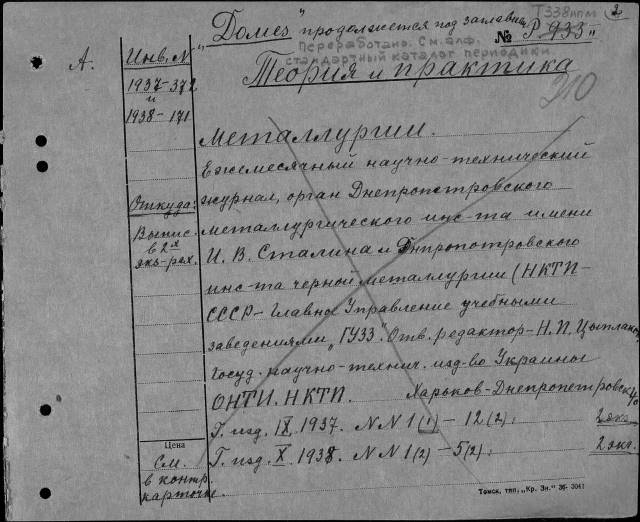 Т338нпм 2
"Домез" продолжается под заглавием
№ Р 933"
Переработано. См. алф.
стандартный каталог периодики
Теория и практика
210
А.
Инв. №
1937-372
и
1938-171
металлургии.
Ежемесячный научно-технический
журнал, орган Днепропетровского
Откуда:
Выпис.
в 2х
экз-рах.
металлургического инс-та имени
И. В. Сталина и Днпропотровского
инс-та черной металлургии (НКТП-
СССР - Главное Управление учебными
заведениями "ГУУЗ". Отв. редактор - Н. П. Цыплаков
Госуд. научно-технич. изд-во Украины
ОНТИ. НКТП. Харьков-Днепропетровск
Г. изд. IX 1937. NN 1(1) - 12(2). 2 экз.
Г. изд. X 1938. NN 1(2) - 5(2). 2 экз.
Цена
См.
в контр.
карточке.
Томск, тип. „Кр. Зн." 36- 3041